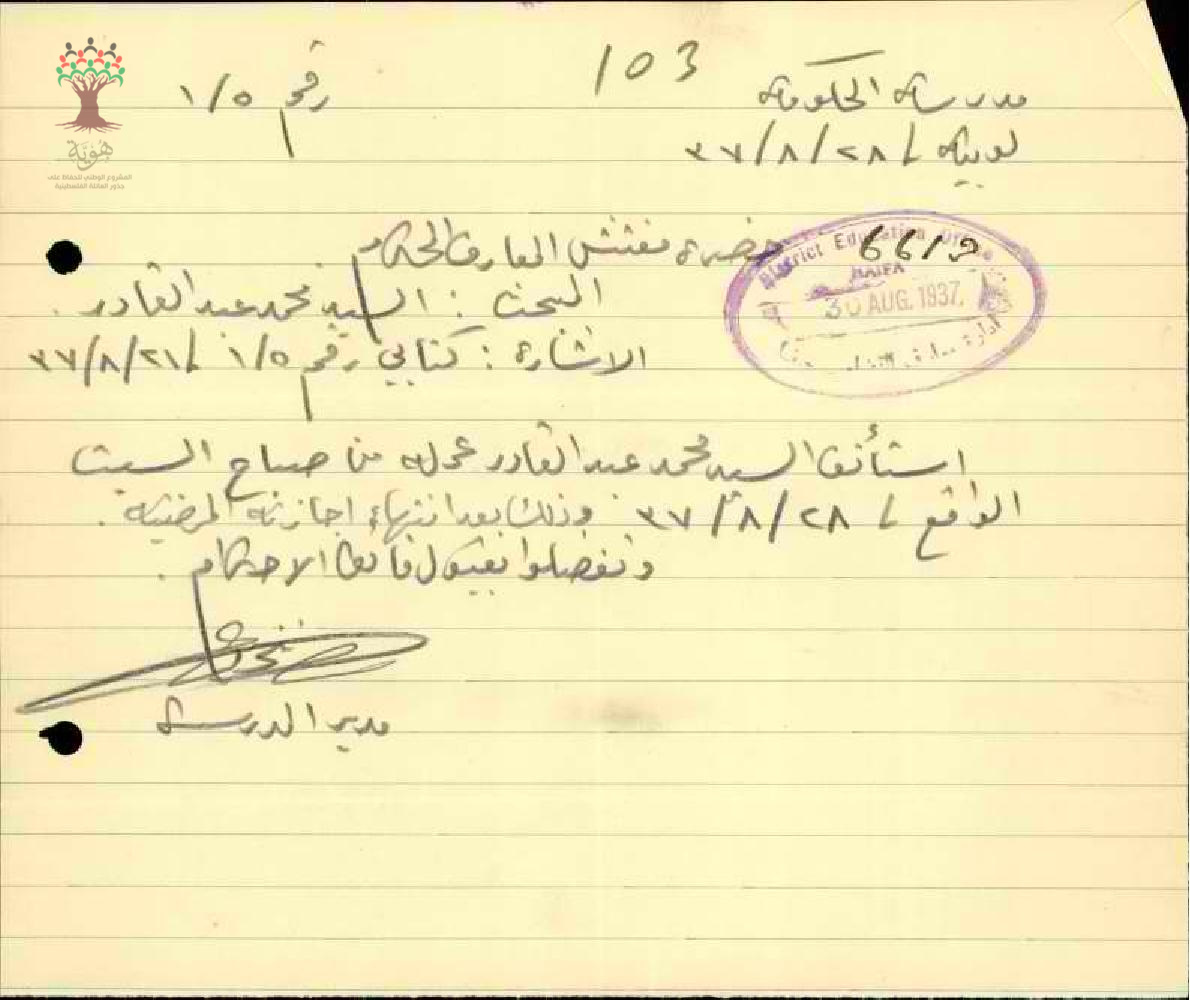 103
مدرسة الحكومة
رقم ١/٥
لوبية / ٢٨/٨/٣٧
هوية
المشروع الوطني للحفاظ على
جذور العائلة الفلسطينية
حضرة مفتش المعارف المحترم
6619
District Education Office
HAIFA
30 AUG. 1937.
البحث : السيد محمد عبد القادر .
الاشارة : كتابي رقم ١/٥ / ٢١/٨/٣٧
استأنف السيد محمد عبد القادر عمله من صباح السبت
الواقع / ٢٨/٨/٣٧ وذلك بعد انتهاء اجازته المرضية .
وتفضلوا بقبول فائق الاحترام .
مدير المدرسة